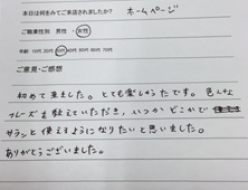 本日は何をみてご来店されましたか? ホームページ
ご職業性別 男性・女性
年齢 10代 20代 30代 40代 50代 60代 70代 80代 90代
ご意見・ご感想
初めて来ました。とても楽しかったです。色んな
フレーズを教えていただき、いつかどこかで
サラッと使えるようになりたいと思いました。
ありがとうございました。